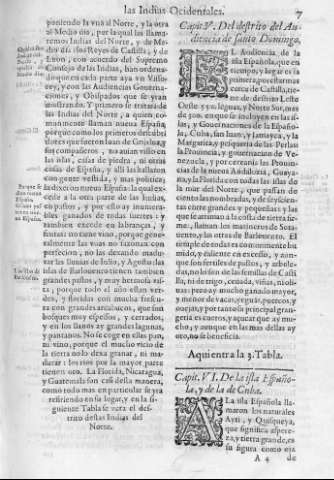 las Indias Ocidentales.
7
poniendo la vna al Norte, y la otra
al Medio dia, por la qual las llama-
remos Indias del Norte, y de Me-
dio dia. Los Reyes de Castilla, y de
Leon, con acuerdo del Supremo
Consejo de las Indias, han ordena-
do que en cada parte aya vn Viso-
rey, y con las Audiencias Gouerna-
ciones, y Obispados que se yran
mostrando. Y primero se tratara de
las Indias del Norte, a quien co-
munmente llaman nueua España,
porque como los primeros descubri
dores que fueron Iuan de Grijalua, y
sus compañeros, no auian visto en
las islas, casas de piedra, ni otras
cosas de España, y alli las hallaron
con gente vestida, y mas politica,
la dixeron nueua España: la qual exce-
de a la otra parte de las Indias,
en pastos, y por esto ay innume-
rables ganados de todas suertes: y
tambien excede en labranças, y
frutas: no tiene vino, porque gene-
ralmente las vuas no sazonan con
perfecion, no las dexando madu-
rar las lluuias de Iulio, y Agosto: las
islas de Barlouento tienen tambien
grandes pastos, y muy hermosa vis-
ta, porque todo el año estan ver-
des, y floridas con mucha frescu-
ra con grandes arcabucos, que son
bosques muy espesos, y cerrados,
y en los llanos ay grandes lagunas,
y pantanos. No se coge en ellas pan,
ni vino, porque el mucho vicio de
la tierra no lo dexa granar, ni ma-
durar: los rios por la mayor parte
tienen oro. La Florida, Nicaragua,
y Guatemala son casi desta manera,
como todo mas en particular se yra
refiriendo en su lugar, y en la si-
guiente Tabla se vera el des-
trito destas Indias del
Norte.
Porque se
España
Capit. V. Del destrito del Au-
diencia de santo Domingo.
EL Audiencia de la
isla Española, que en
tiempo, y lugar es la
primera, por estar mas
cerca de Castilla, tie-
ne de destrito Leste
Oeste
leguas, y Norte Sur, mas
de 300. en que se incluyen en las is-
las, y Gouernaciones de la Españo-
la, Cuba, san Iuan, y Iamayca, y la
Margarita, y pesqueria de las Perlas
la Prouincia, y gouernacion de Ve-
nezuela, y por cercania las Prouin-
cias de la nueua Andaluzia, Guaya-
na, y la Florida con todas las islas de
la mar del Norte, que passan de
ciento las nombradas, y de seyscien-
tas entre grandes y pequeñas: y las
que se arriman a la costa de tierra fir-
me, llaman los marineros de Sota-
uento, y las otras de Barlouento. El
temple de todas es comunmente hu
mido, y caliente en excesso, y aun-
que son fertiles de pastos, y arbole-
da, no lo son de las semillas de Casti
lla, ni de trigo, ceuada, viñas, ni oli-
uas: pero ay mucho ganado mayor,
y menor de vacas, yeguas, puercos, y
ouejas, y por tanto su principal gran-
geria, es cueros, y açucar que ay mu-
cho, y aunque en las mas dellas ay
oro, no se beneficia.
Aqui entra la 3. Tabla.
Capit. VI. De la isla Españo-
la, y de la de Cuba.
A La isla Española lla-
maron los naturales
Ayti, y Quisqueya,
que significa aspere-
za, y tierra grande, es
su figura como
A 4
de